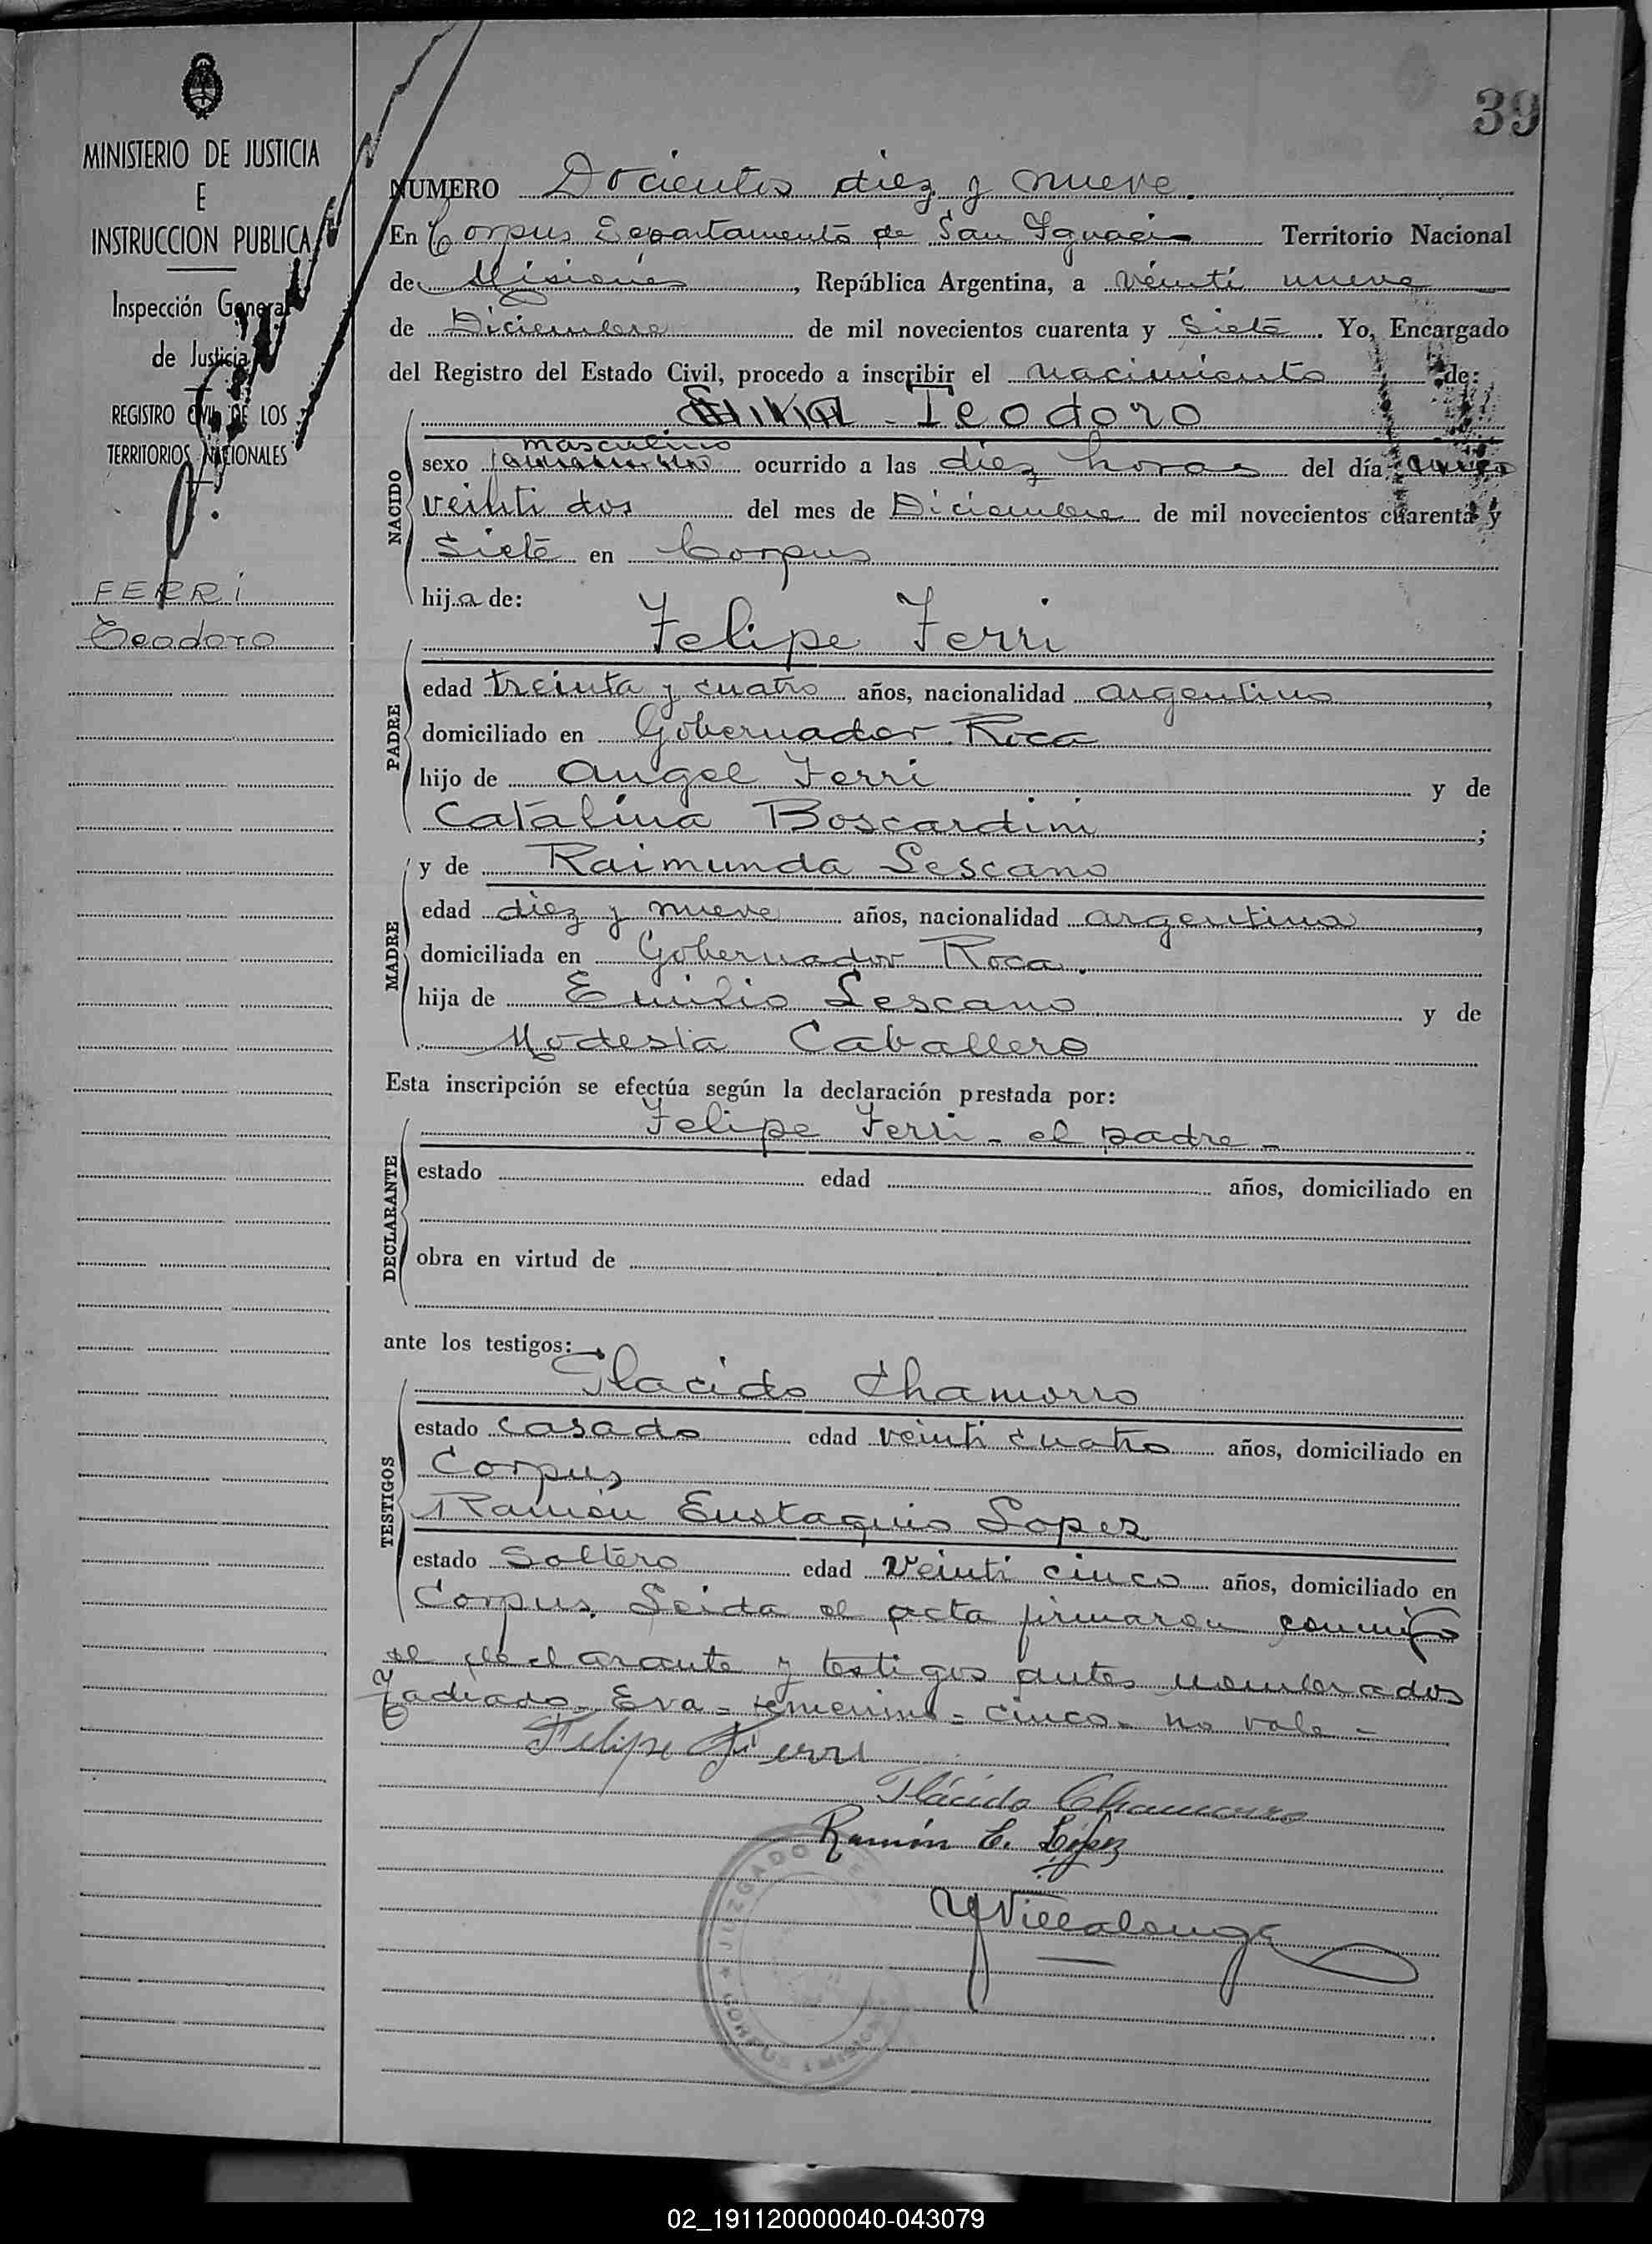 39
MINISTERIO DE JUSTICIA
E
INSTRUCCION PUBLICA
Inspección General
de Justicia
REGISTRO CIVIL DE LOS
TERRITORIOS NACIONALES
FERRi
Teodoro
NUMERO Docientos diez y nueve.
En Corpus Departamento de San Ignacio Territorio Nacional
de Misiones, República Argentina, a veinti nueve
de Diciembre de mil novecientos cuarenta y siete. Yo, Encargado
del Registro del Estado Civil, procedo a inscribir el nacimiento de:
- Teodoro
masculino
sexo ocurrido a las diez horas del día
veinti dos del mes de Diciembre de mil novecientos cuarenta y
siete en Corpus
NACIDO
hija de:
Felipe Ferri
edad treinta y cuatro años, nacionalidad argentino,
PADRE
domiciliado en Gobernador Roca
hijo de Angel Ferri y de
Catalina Boscardini;
y de Raimunda Lescano
edad diez y nueve años, nacionalidad argentina,
MADRE
domiciliada en Gobernador Roca.
hija de Emilio Lescano y de
Modesta Caballero
Esta inscripción se efectúa según la declaración prestada por:
Felipe Ferri - el padre -
DECLARANTE
estado edad años, domiciliado en
obra en virtud de
ante los testigos:
Placido Chamorro
estado casado edad veinti cuatro años, domiciliado en
Corpus,
TESTIGOS
Ramón Eustaquio Lopez
estado Soltero edad Veinti cinco años, domiciliado en
Corpus. Leida el acta firmaron conmigo
el declarante y testigos antes nombrados
Tachado - Eva - femenino - cinco - no vale -
Felipe Ferri
Plácido Chamorro
Ramón E. López
Villalonga
JUZGADO DE
CORPUS (MISIONES
02_191120000040-043079